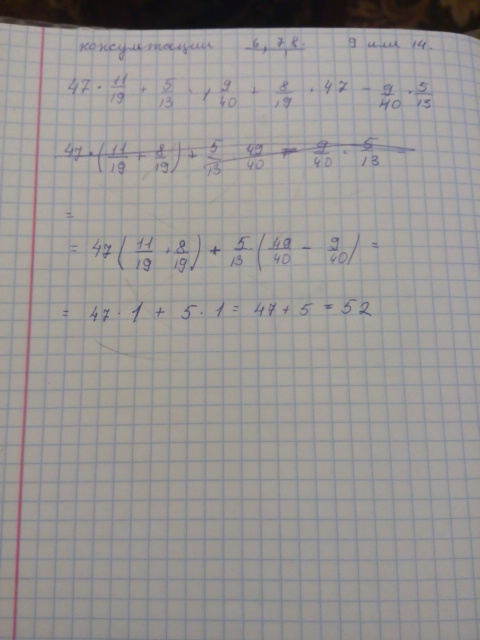 консультации 6, 7, 8. 9 или 14.
47 · 11/19 + 5/13 · 1 9/40 + 8/19 · 47 - 9/40 · 5/13
47 · (11/19 + 8/19) + 5/13 49/40 - 9/40 · 5/13
=
= 47 (11/19 + 8/19) + 5/13 (49/40 - 9/40) =
= 47 · 1 + 5 · 1 = 47 + 5 = 52